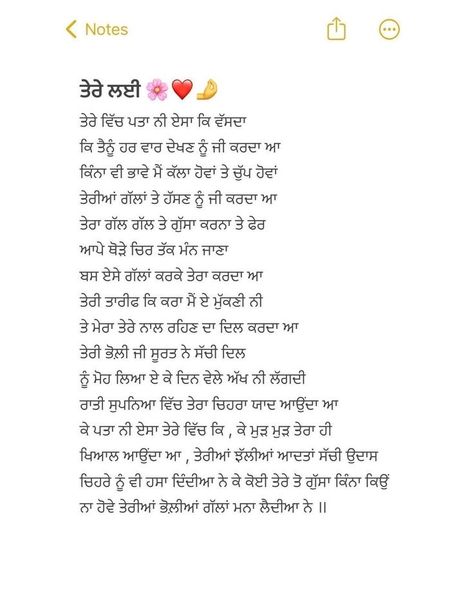 Notes
ਤੇਰੇ ਲਈ 🌸❤️🤌
ਤੇਰੇ ਵਿੱਚ ਪਤਾ ਨੀ ਏਸਾ ਕਿ ਵੱਸਦਾ
ਕਿ ਤੈਨੂੰ ਹਰ ਵਾਰ ਦੇਖਣ ਨੂੰ ਜੀ ਕਰਦਾ ਆ
ਕਿੰਨਾ ਵੀ ਭਾਵੇ ਮੈਂ ਕੱਲਾ ਹੋਵਾਂ ਤੇ ਚੁੱਪ ਹੋਵਾਂ
ਤੇਰੀਆਂ ਗੱਲਾਂ ਤੇ ਹੱਸਣ ਨੂੰ ਜੀ ਕਰਦਾ ਆ
ਤੇਰਾ ਗੱਲ ਗੱਲ ਤੇ ਗੁੱਸਾ ਕਰਨਾ ਤੇ ਫੇਰ
ਆਪੇ ਥੋੜੇ ਚਿਰ ਤੱਕ ਮੰਨ ਜਾਣਾ
ਬਸ ਏਸੇ ਗੱਲਾਂ ਕਰਕੇ ਤੇਰਾ ਕਰਦਾ ਆ
ਤੇਰੀ ਤਾਰੀਫ ਕਿ ਕਰਾ ਮੈਂ ਏ ਮੁੱਕਣੀ ਨੀ
ਤੇ ਮੇਰਾ ਤੇਰੇ ਨਾਲ ਰਹਿਣ ਦਾ ਦਿਲ ਕਰਦਾ ਆ
ਤੇਰੀ ਭੋਲੀ ਜੀ ਸੂਰਤ ਨੇ ਸੱਚੀ ਦਿਲ
ਨੂੰ ਮੋਹ ਲਿਆ ਏ ਕੇ ਦਿਨ ਵੇਲੇ ਅੱਖ ਨੀ ਲੱਗਦੀ
ਰਾਤੀ ਸੁਪਨਿਆ ਵਿੱਚ ਤੇਰਾ ਚਿਹਰਾ ਯਾਦ ਆਉਂਦਾ ਆ
ਕੇ ਪਤਾ ਨੀ ਏਸਾ ਤੇਰੇ ਵਿੱਚ ਕਿ , ਕੇ ਮੁੜ ਮੁੜ ਤੇਰਾ ਹੀ
ਖਿਆਲ ਆਉਂਦਾ ਆ , ਤੇਰੀਆਂ ਝੱਲੀਆਂ ਆਦਤਾਂ ਸੱਚੀ ਉਦਾਸ
ਚਿਹਰੇ ਨੂੰ ਵੀ ਹਸਾ ਦਿੰਦੀਆ ਨੇ ਕੇ ਕੋਈ ਤੇਰੇ ਤੋ ਗੁੱਸਾ ਕਿੰਨਾ ਕਿਉਂ
ਨਾ ਹੋਵੇ ਤੇਰੀਆਂ ਭੋਲੀਆਂ ਗੱਲਾਂ ਮਨਾ ਲੈਦੀਆ ਨੇ ॥